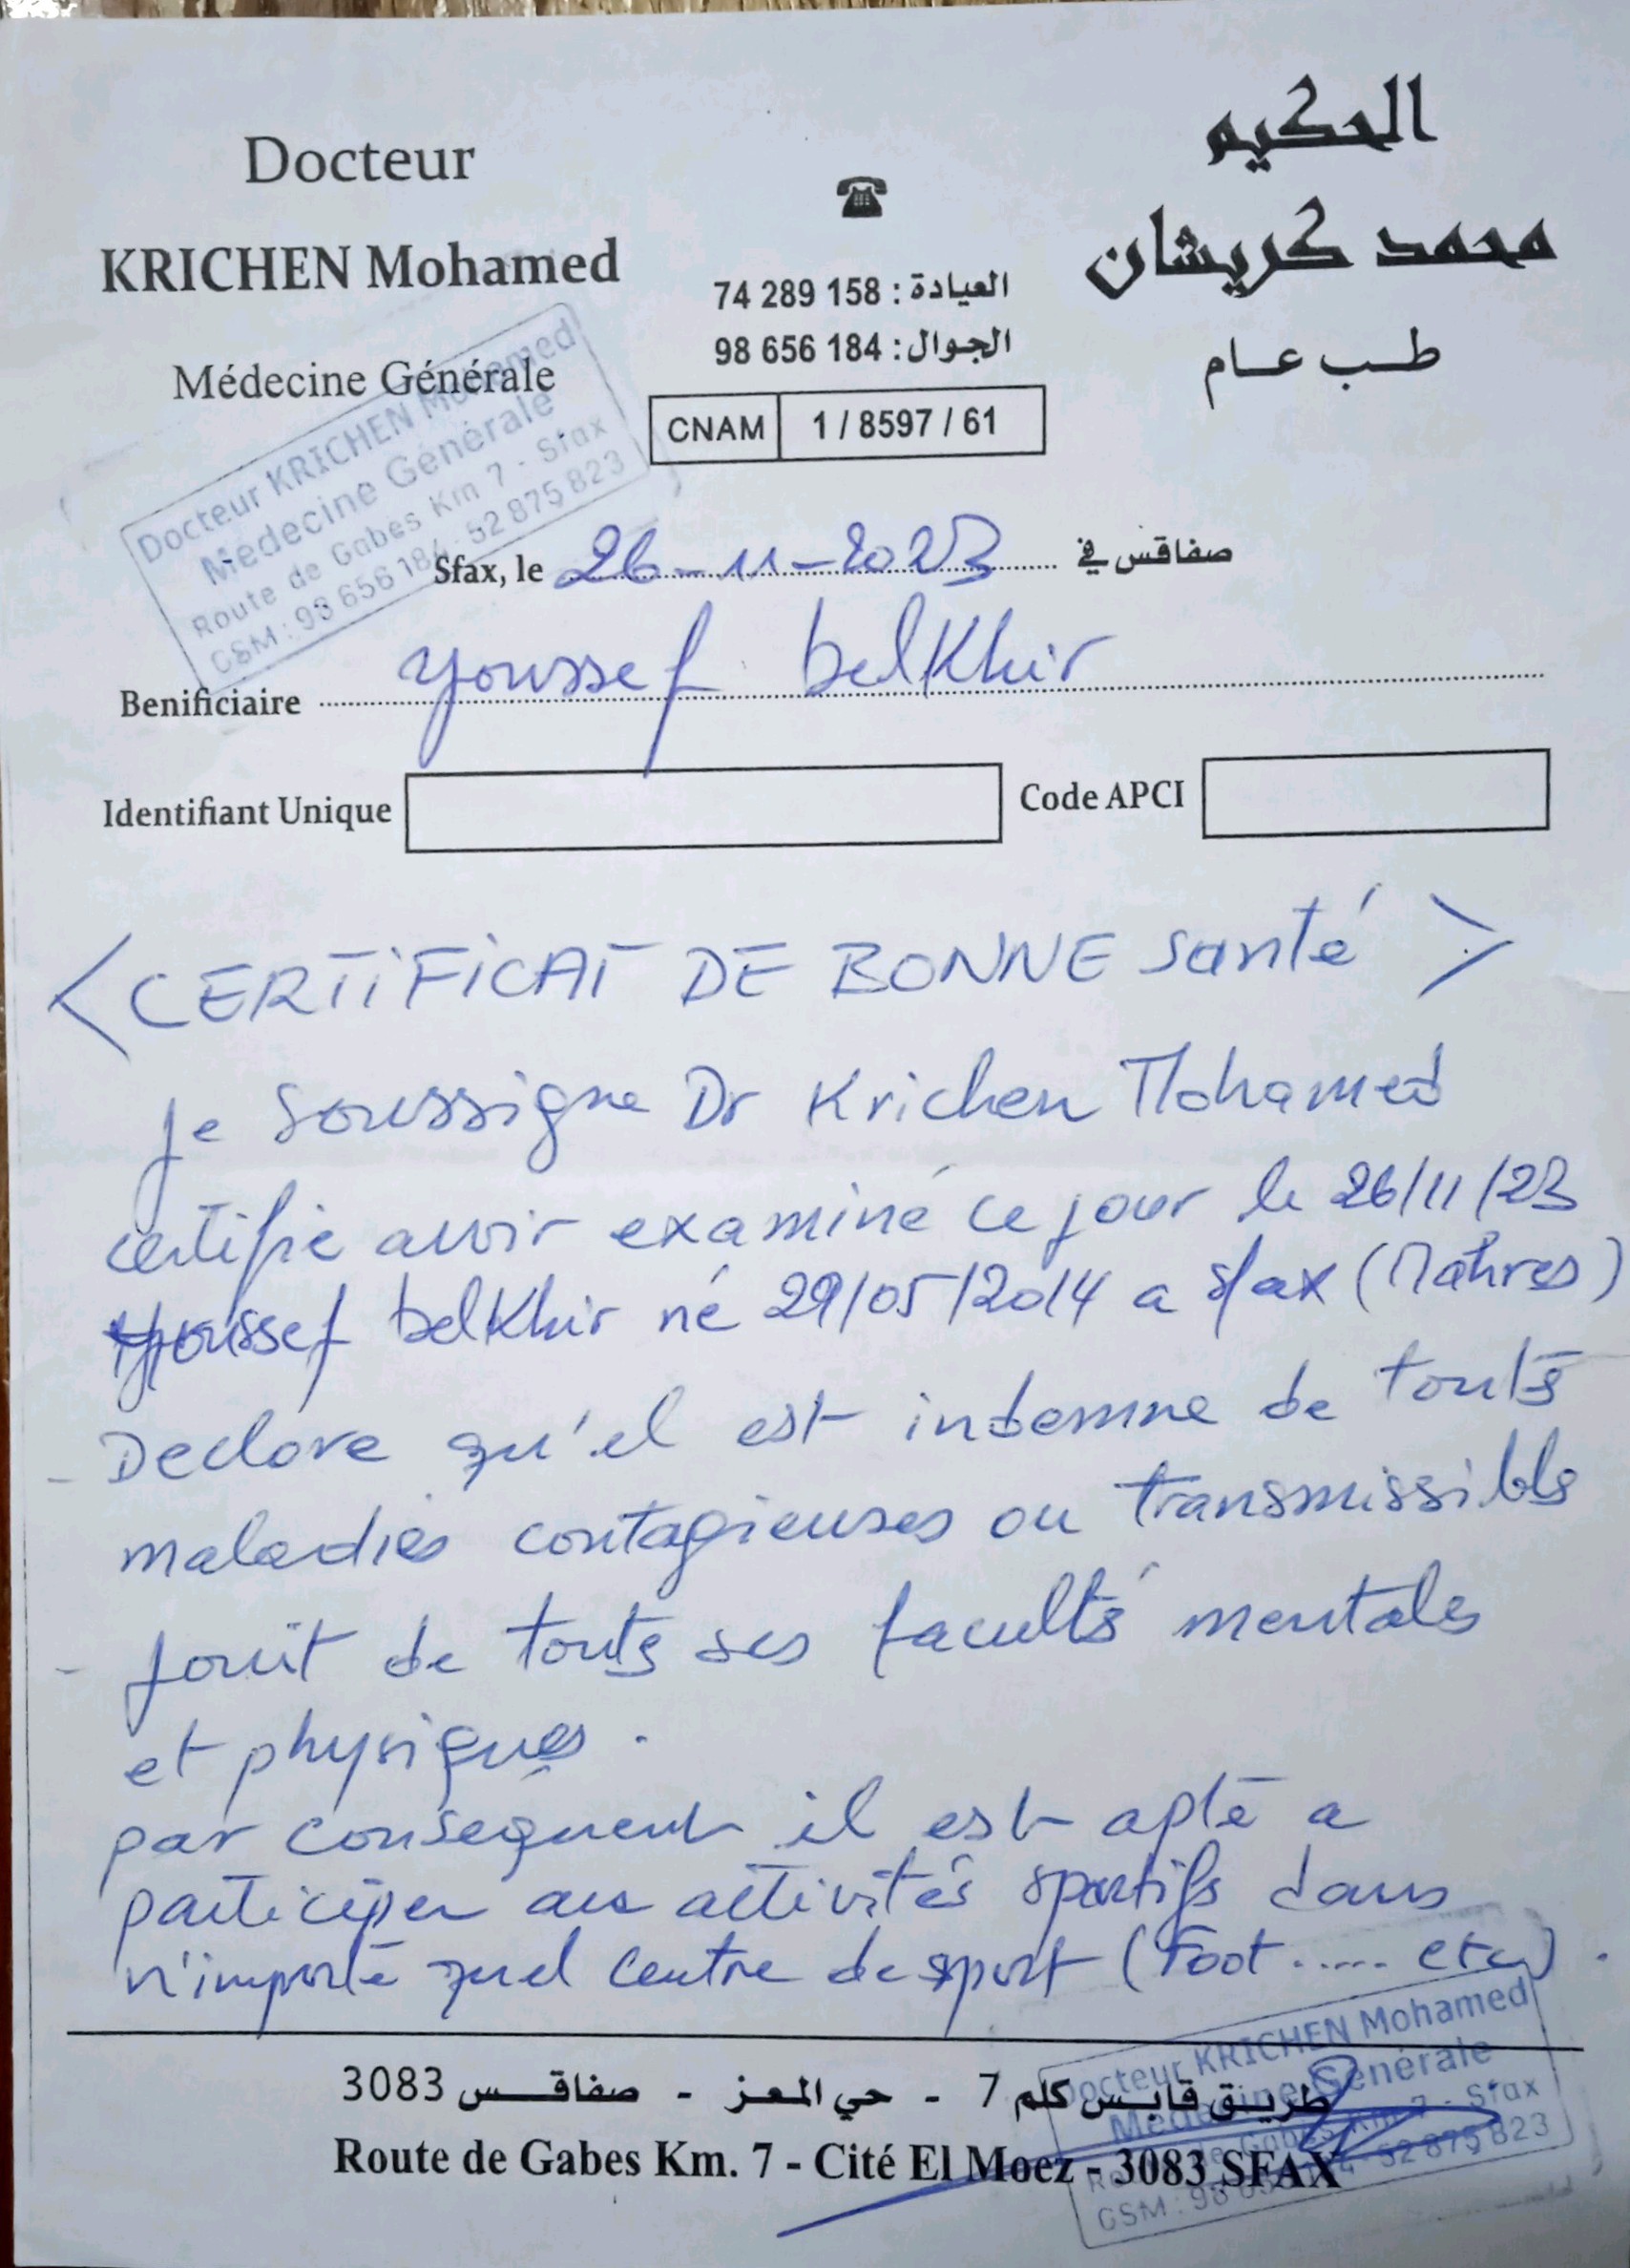 Docteur
KRICHEN Mohamed
Médecine Générale
العيادة : 74 289 158
الجوال : 98 656 184
CNAM 1 / 8597 / 61
الحكيم
محمد كريشان
طب عام
Docteur KRICHEN Mohamed
Médecine Générale
Route de Gabes Km 7 - Sfax
GSM : 98 656 184 - 52 875 823
Sfax, le 26-11-2023 صفاقس في
Benificiaire youssef belKhir
Identifiant Unique Code APCI
<CERTIFICAT DE BONNE santé>
Je soussigne Dr Krichen Mohamed
certifie avoir examiné ce jour le 26/11/23
youssef belKhir né 29/05/2014 a sfax (Mahres)
- Declare qu'el est indemne de touts
maladies contagieuses ou transmissibls
- jouit de touts ses facultés mentales
et physiques.
par consequent il est apte a
participer aux activités sportifs dans
n'importe quel centre de sport (Foot ..... etc).
طريق قابس كلم 7 - حي المعز - صفاقس 3083
Route de Gabes Km. 7 - Cité El Moez - 3083 SFAX
Docteur KRICHEN Mohamed
Médecine Générale
Route de Gabes Km 7 - Sfax
GSM : 98 656 184 - 52 875 823